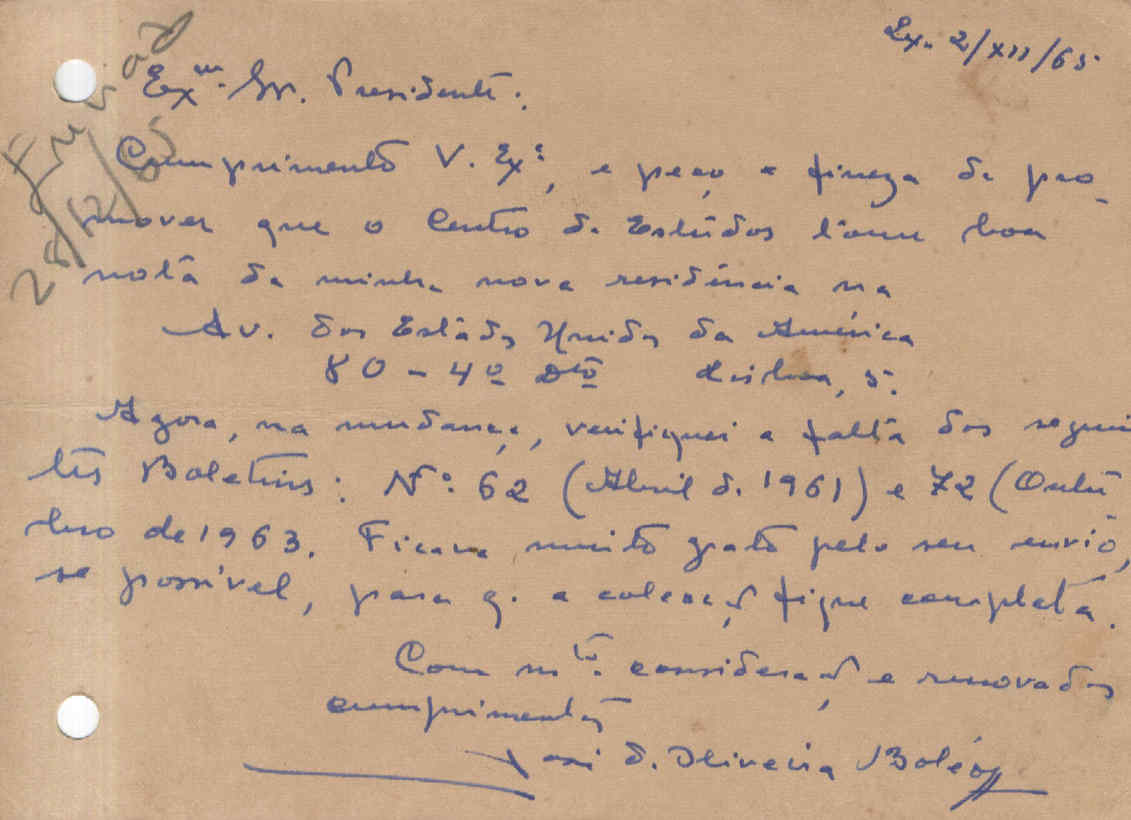 Lx. 2/XII/65
Exm. Sr. Presidente:
Cumprimento V. Exª, e peço a fineza de pro-
mover que o Centro de Estudos tome boa
nota da minha nova residência na
Av. dos Estados Unidos da América
80 - 4º Dtº Lisboa, 5.
Agora, na mudança, verifiquei a falta dos seguin
tes Boletins: Nº. 62 (Abril de 1961) e 72 (Outu
bro de 1963. Ficava muito grato pelo seu envio,
se possível, para q. a colecção fique completa.
Com mtª. consideração e renovados
cumprimentos
José d. Oliveira Boléo